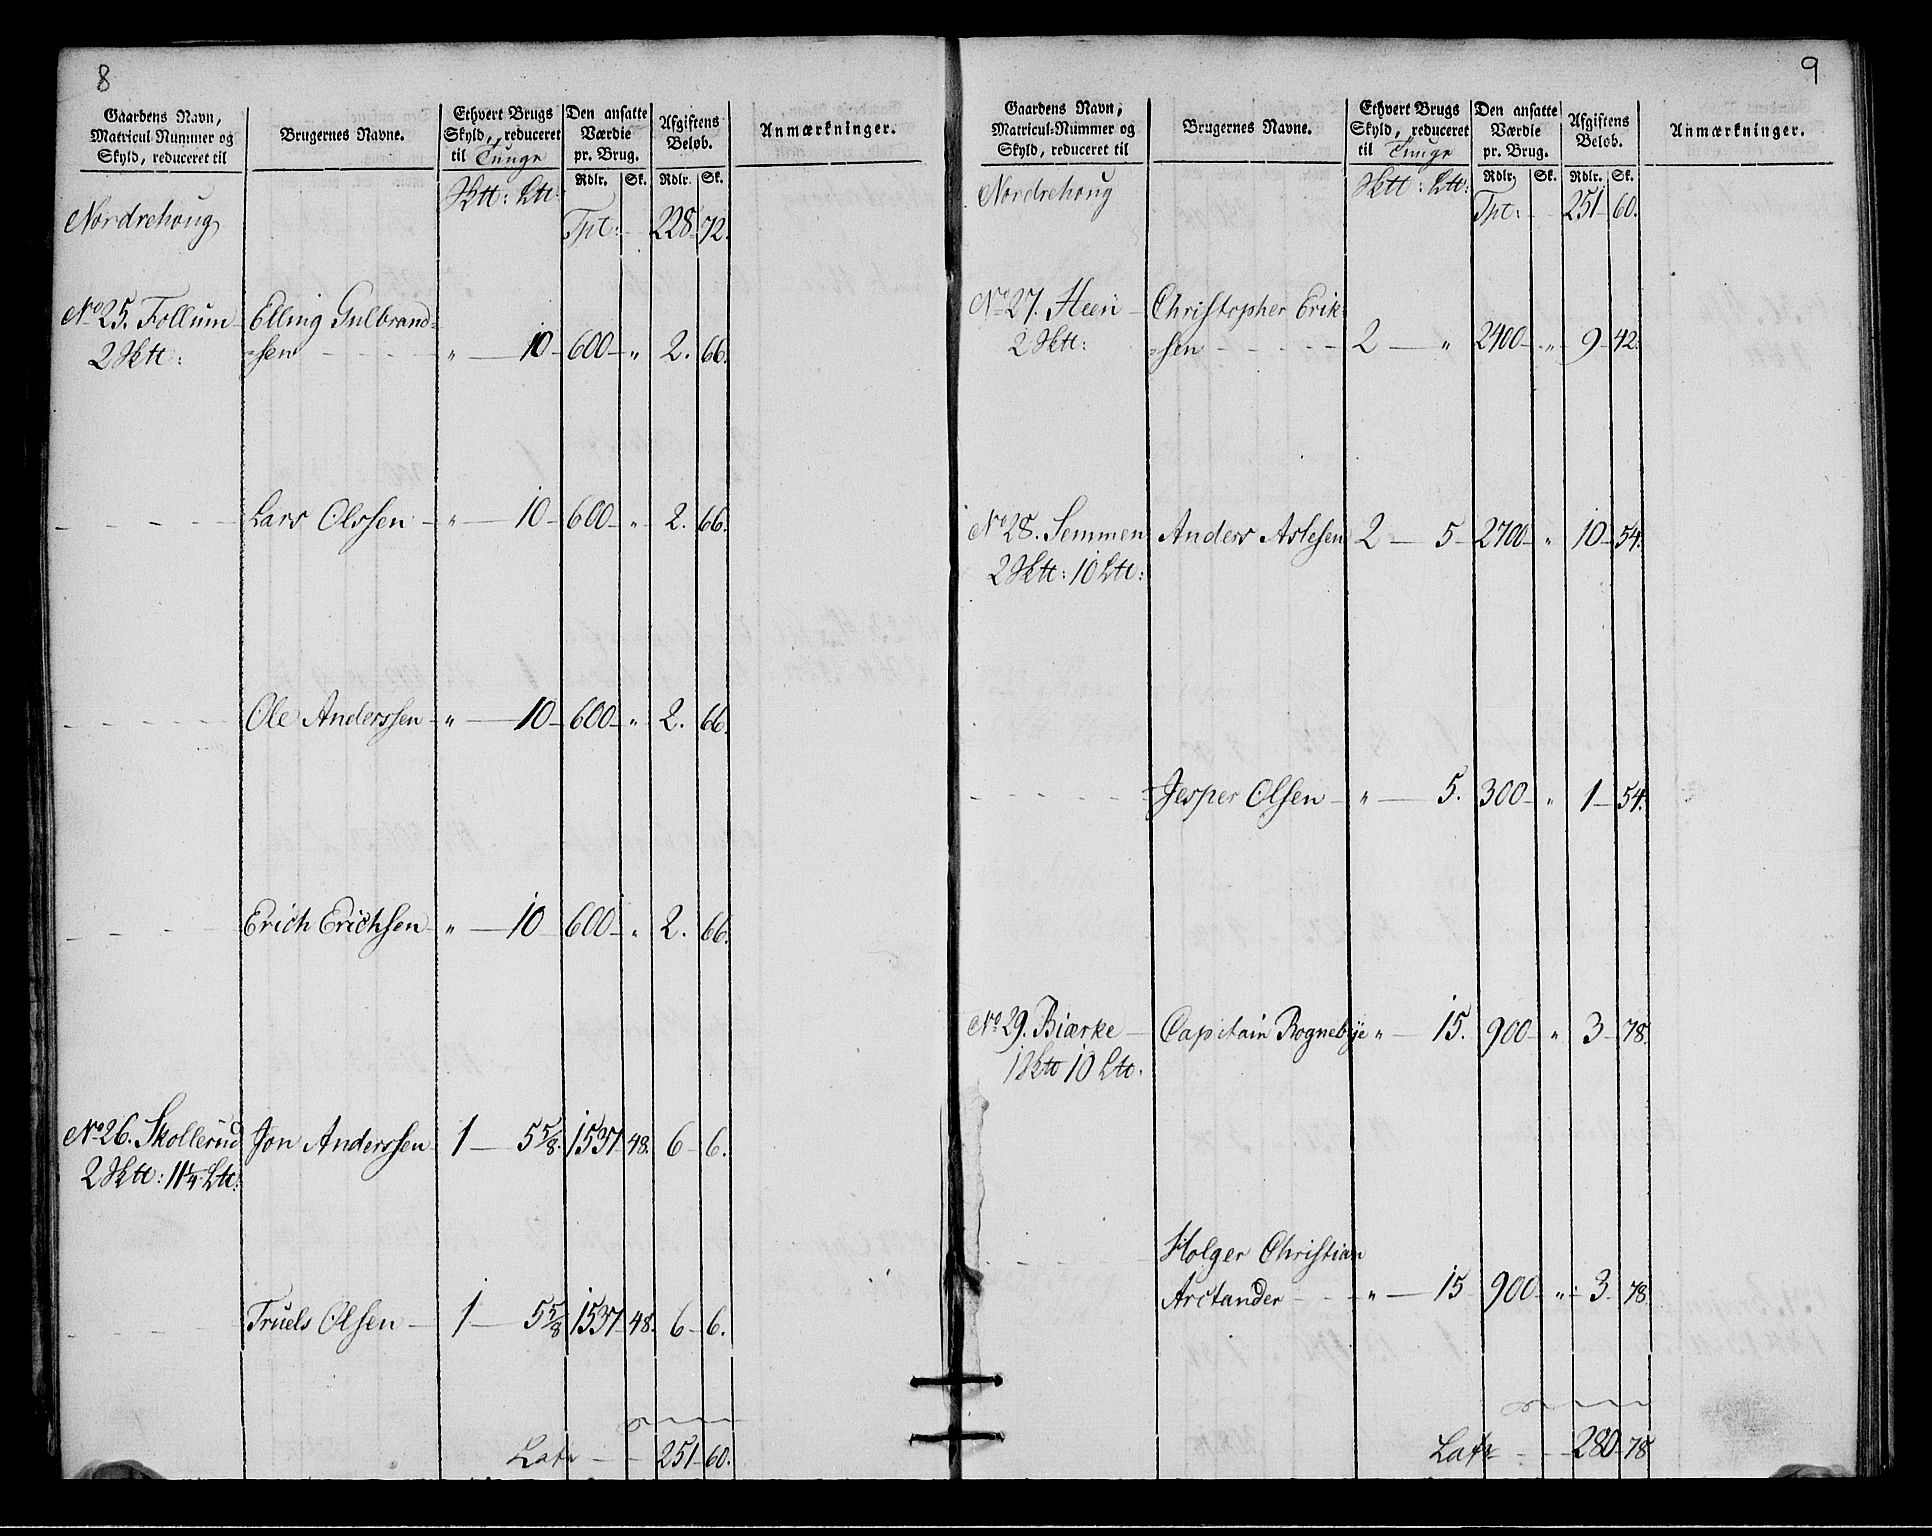 8
Gaardens Navn, Matricul-Nummer og Skyld, reduceret til
Brugernes Navne.
Ethvert Brugs Skyld, reduceret til Tunge
Den ansatte Værdie pr. Brug.
Afgiftens Beløb.
Anmærkninger.
Sktt: Ltt:
Rdlr. Sk. Rdlr. Sk.
Nordrehoug Tpt: 228 72.
No 25. Follum Elling Gulbrand-
2 Sktt: sen " 10 600 " 2. 66.
Lars Olssen " 10 600 " 2. 66.
Ole Anderssen " 10 600 " 2. 66.
Erich Erichsen " 10 600 " 2. 66.
No 26. Skollerud Jon Anderssen 1 5 5/8 1537 48. 6 6.
2 Sktt: 11 1/4 Ltt:
Truels Olsen 1 5 5/8 1537 48. 6 6.
Latr 251 60.
9
Gaardens Navn, Matricul-Nummer og Skyld, reduceret til
Brugernes Navne.
Ethvert Brugs Skyld, reduceret til Tunge
Den ansatte Værdie pr. Brug.
Afgiftens Beløb.
Anmærkninger.
Sktt: Ltt:
Rdlr. Sk. Rdlr. Sk.
Nordrehoug Tpt: 251 60.
No 27. Heen Christopher Erik-
2 Sktt: sen 2 " 2400 " 9 42.
No 28. Semmen Anders Aslesen 2 5 2700 " 10 54.
2 Sktt: 10 Ltt:
Jesper Olsen " 5. 300 " 1 54.
No 29. Biærke Capitain Rognebye " 15. 900 " 3 78.
1 Sktt 10 Ltt:
Holger Christian
Arctander " 15 900 " 3 78.
Latr 280 78